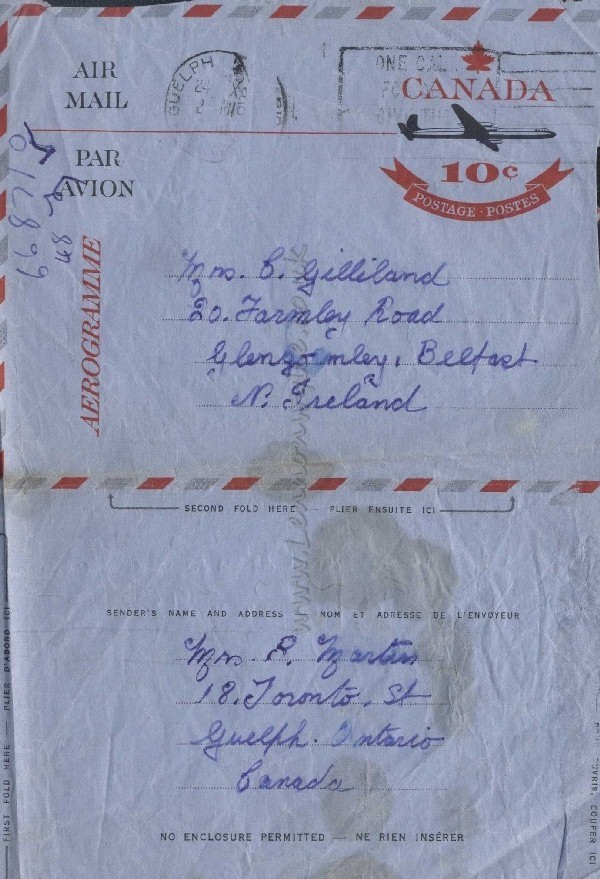 AIR
MAIL
PAR
AVION
GUELPH
ONE
CANADA
10¢
POSTAGE · POSTES
AEROGRAMME
668710
48
Mrs. C. Gilliland
20. Farmley Road
Glengormley. Belfast
N. Ireland
SECOND FOLD HERE — PLIER ENSUITE ICI
SENDER'S NAME AND ADDRESS — NOM ET ADRESSE DE L'ENVOYEUR
Mrs E. Martin
18. Toronto. St
Guelph. Ontario
Canada
NO ENCLOSURE PERMITTED — NE RIEN INSÉRER
FIRST FOLD HERE — PLIER D'ABORD ICI
OUVRIR, COUPER ICI